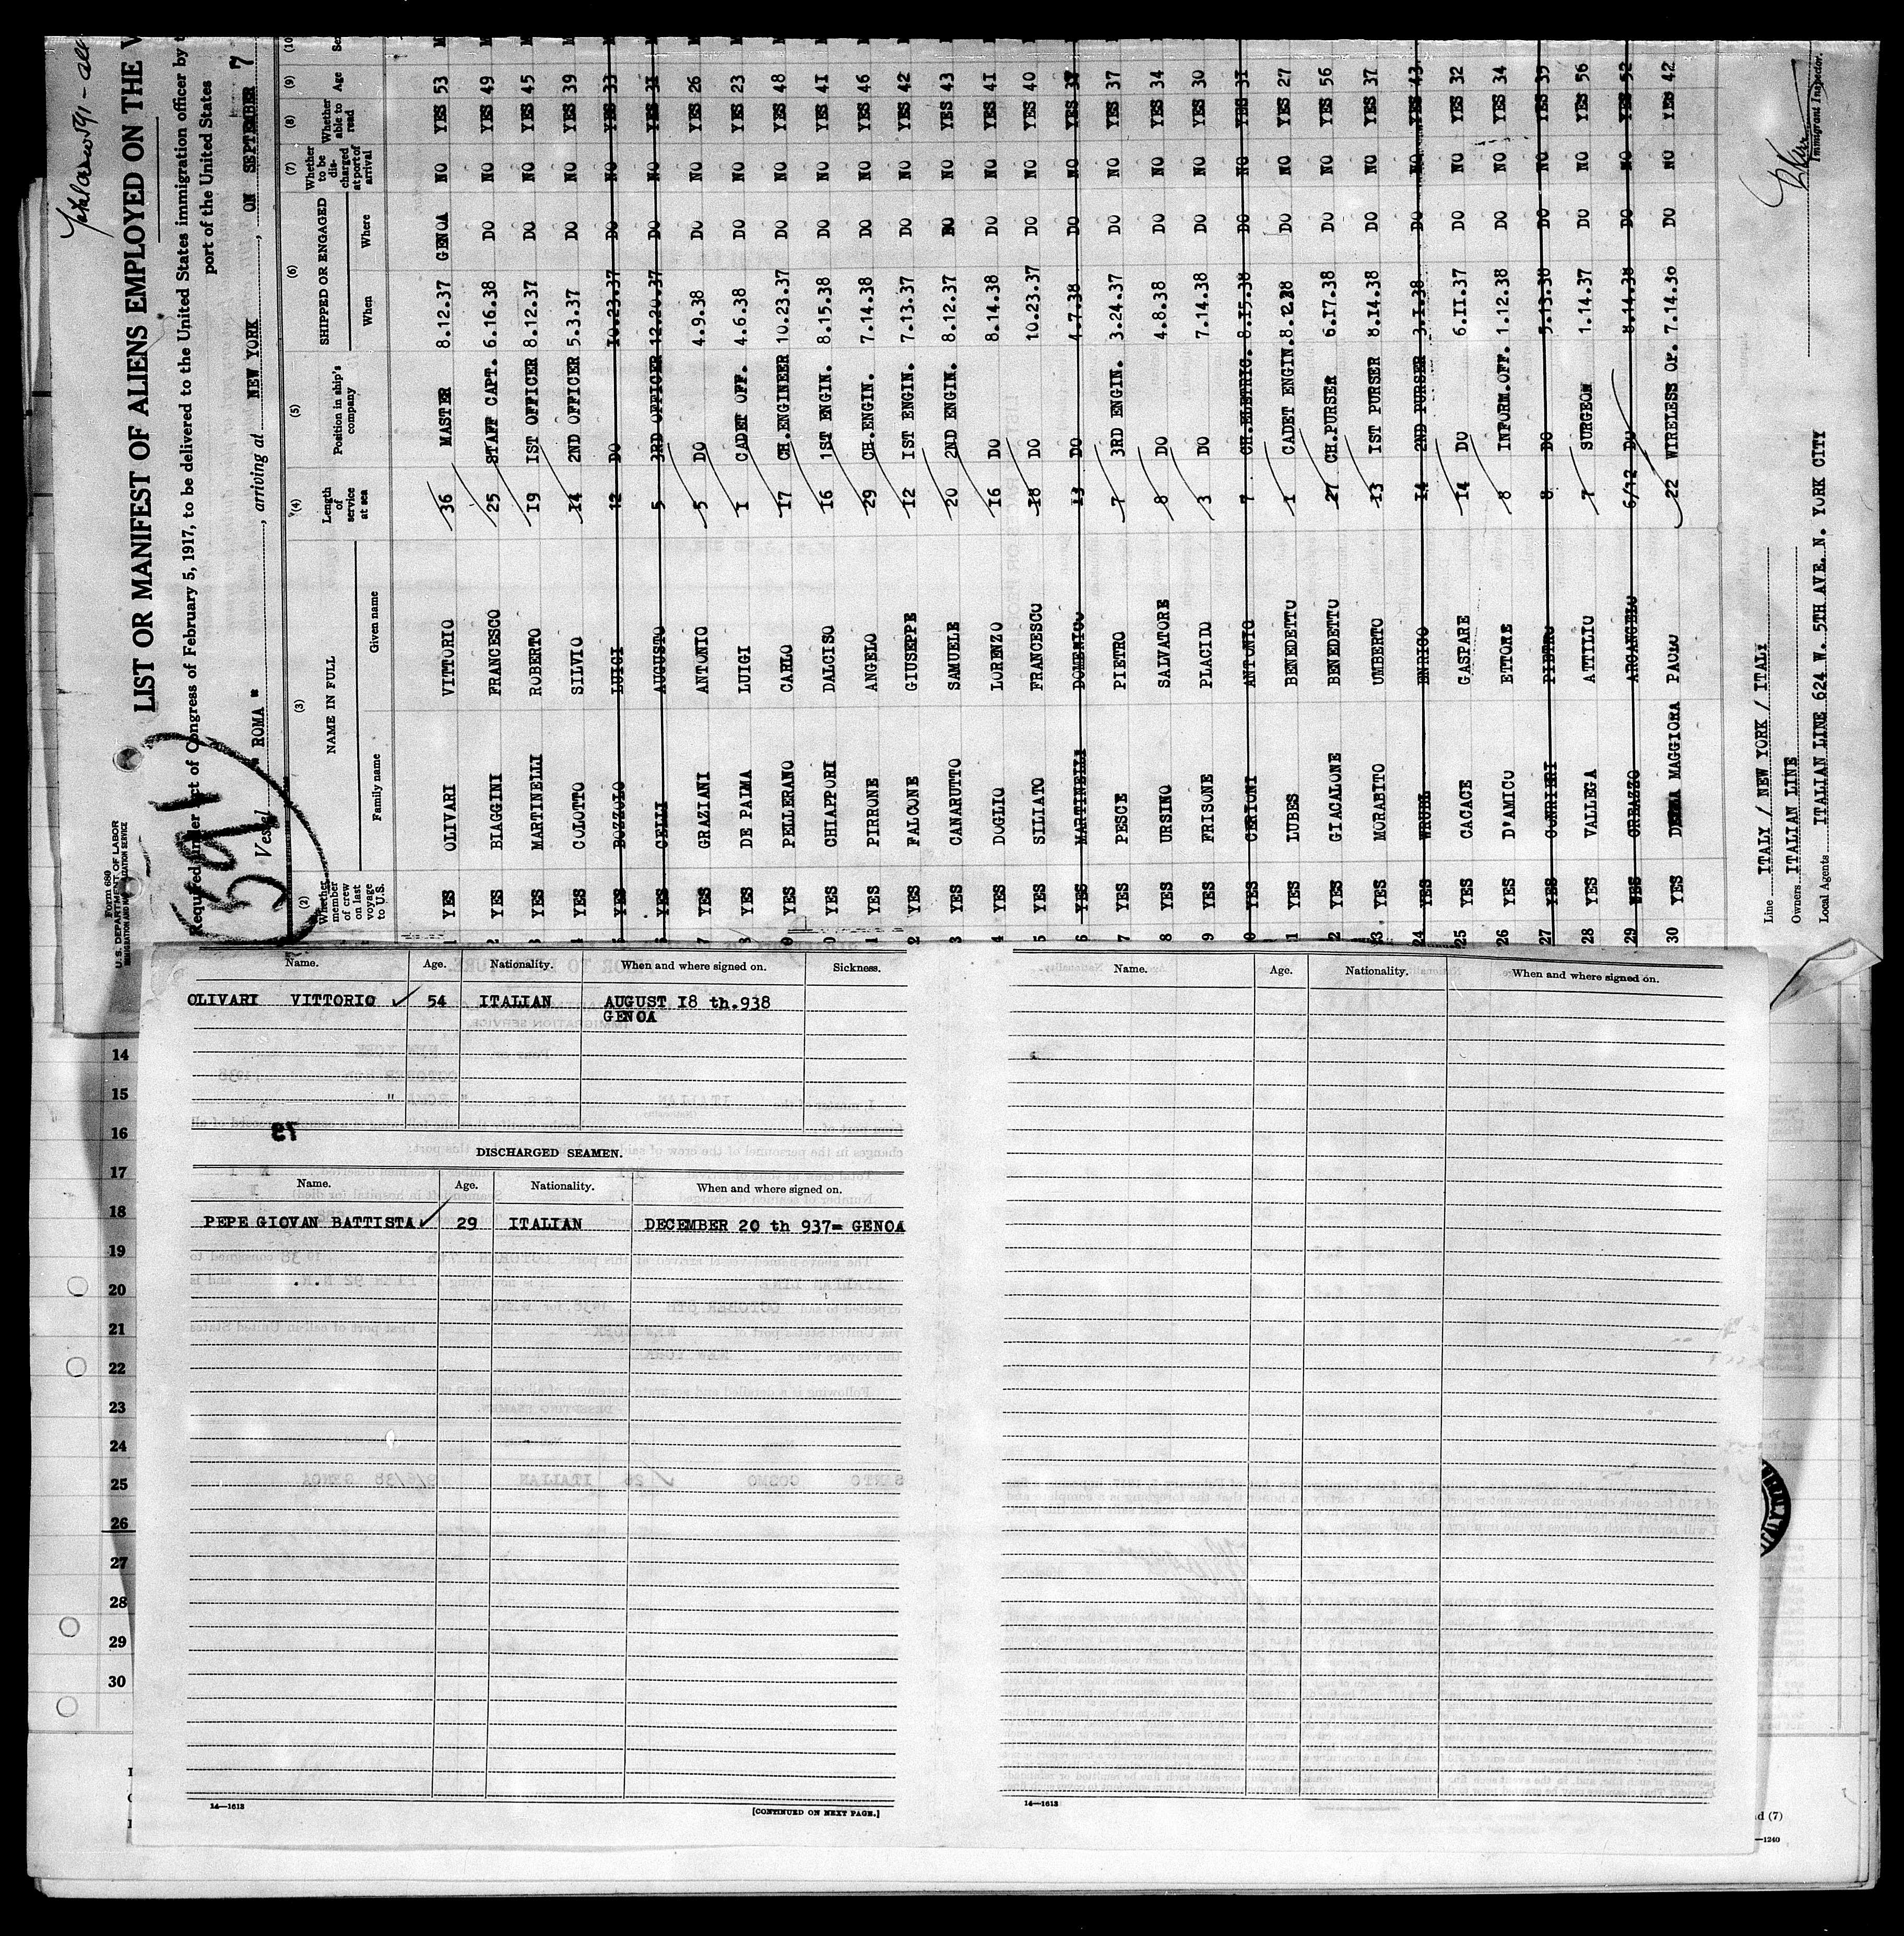 LIST OR MANIFEST OF ALIENS EMPLOYED ON THE
Form 680
U. S. DEPARTMENT OF LABOR
IMMIGRATION AND NATURALIZATION SERVICE
Required under Act of Congress of February 5, 1917, to be delivered to the United States immigration officer by
port of the United States
Vessel " ROMA " , arriving at NEW YORK , ON SEPTEMBER 7
591
(2) (3) (4) (5) (6) (7) (8) (9) (10
Whether member of crew on last voyage to U.S. NAME IN FULL Family name Given name Length of service at sea Position in ship's company SHIPPED OR ENGAGED When Where Whether to be discharged at port of arrival Whether able to read Age
1 YES OLIVARI VITTORIO 36 MASTER 8.12.37 GENOA NO YES 53
2 YES BIAGGINI FRANCESCO 25 STAFF CAPT. 6.16.38 DO NO YES 49
3 YES MARTINELLI ROBERTO 19 IST OFFICER 8.12.37 DO NO YES 45
4 YES COLOTTO SILVIO 14 2ND OFFICER 5.3.37 DO NO YES 39
5 YES BOZZOLO LUIGI 12 DO 10.23.37 DO NO YES 33
6 YES CELLI AUGUSTO 5 3RD OFFICER 12.20.37 DO NO YES 31
7 YES GRAZIANI ANTONIO 5 DO 4.9.38 DO NO YES 26
8 YES DE PALMA LUIGI I CADET OFF. 4.6.38 DO NO YES 23
9 YES PELLERANO CARLO 17 CH.ENGINEER 10.23.37 DO NO YES 48
10 YES CHIAPPORI DALCISO 16 1ST ENGIN. 8.15.38 DO NO YES 41
11 YES PIRRONE ANGELO 29 CH.ENGIN. 7.14.38 DO NO YES 46
12 YES FALCONE GIUSEPPE 12 IST ENGIN. 7.13.37 DO NO YES 42
13 YES CANARUTTO SAMUELE 20 2ND ENGIN. 8.12.37 DO NO YES 43
14 YES DOGLIO LORENZO 16 DO 8.14.38 DO NO YES 41
15 YES SILIATO FRANCESCO 18 DO 10.23.37 DO NO YES 40
16 YES MARTINELLI DOMENICO 13 DO 4.7.38 DO NO YES 37
17 YES PESCE PIETRO 7 3RD ENGIN. 3.24.37 DO NO YES 37
18 YES URSINO SALVATORE 8 DO 4.8.38 DO NO YES 34
19 YES FRISONE PLACIDO 3 DO 7.14.38 DO NO YES 30
20 YES CERIONI ANTONIO 7 CH.ELETRIC. 8.15.38 DO NO YES 31
21 YES LUBES BENEDETTO 1 CADET ENGIN. DO NO YES 27
22 YES GIACALONE BENEDETTO 27 CH.PURSER 6.17.38 DO NO YES 56
23 YES MORABITO UMBERTO 13 IST PURSER 8.14.38 DO NO YES 37
24 YES ENRICO 14 2ND PURSER 3.1.38 DO NO YES 43
25 YES CACACE GASPARE 14 DO 6.11.37 DO NO YES 32
26 YES D'AMICO ETTORE 8 INFORM.OFF. 1.12.38 DO NO YES 34
27 YES PIETRO 8 DO 5.13.38 DO NO YES 39
28 YES VALLEGA ATTILIO 7 SURGEON 1.14.37 DO NO YES 56
29 YES ARCANGELO 6/12 DO 8.14.38 DO NO YES 52
30 YES MAGGIORA PAOLO 22 WIRELESS OP. 7.14.36 DO NO YES 42
Line ITALY / NEW YORK / ITALY
Owners ITALIAN LINE
Local Agents ITALIAN LINE 624 W. 5TH AVE. N. YORK CITY
Immigrant Inspector.
Name. Age. Nationality. When and where signed on. Sickness.
OLIVARI VITTORIO 54 ITALIAN AUGUST I8 th.938
GENOA
DISCHARGED SEAMEN.
Name. Age. Nationality. When and where signed on.
PEPE GIOVAN BATTISTA 29 ITALIAN DECEMBER 20 th 937= GENOA
14—1613
[CONTINUED ON NEXT PAGE.]
Name. Age. Nationality. When and where signed on.
14—1613
14
15
16
17
18
19
20
21
22
23
24
25
26
27
28
29
30
d (7)
—1240